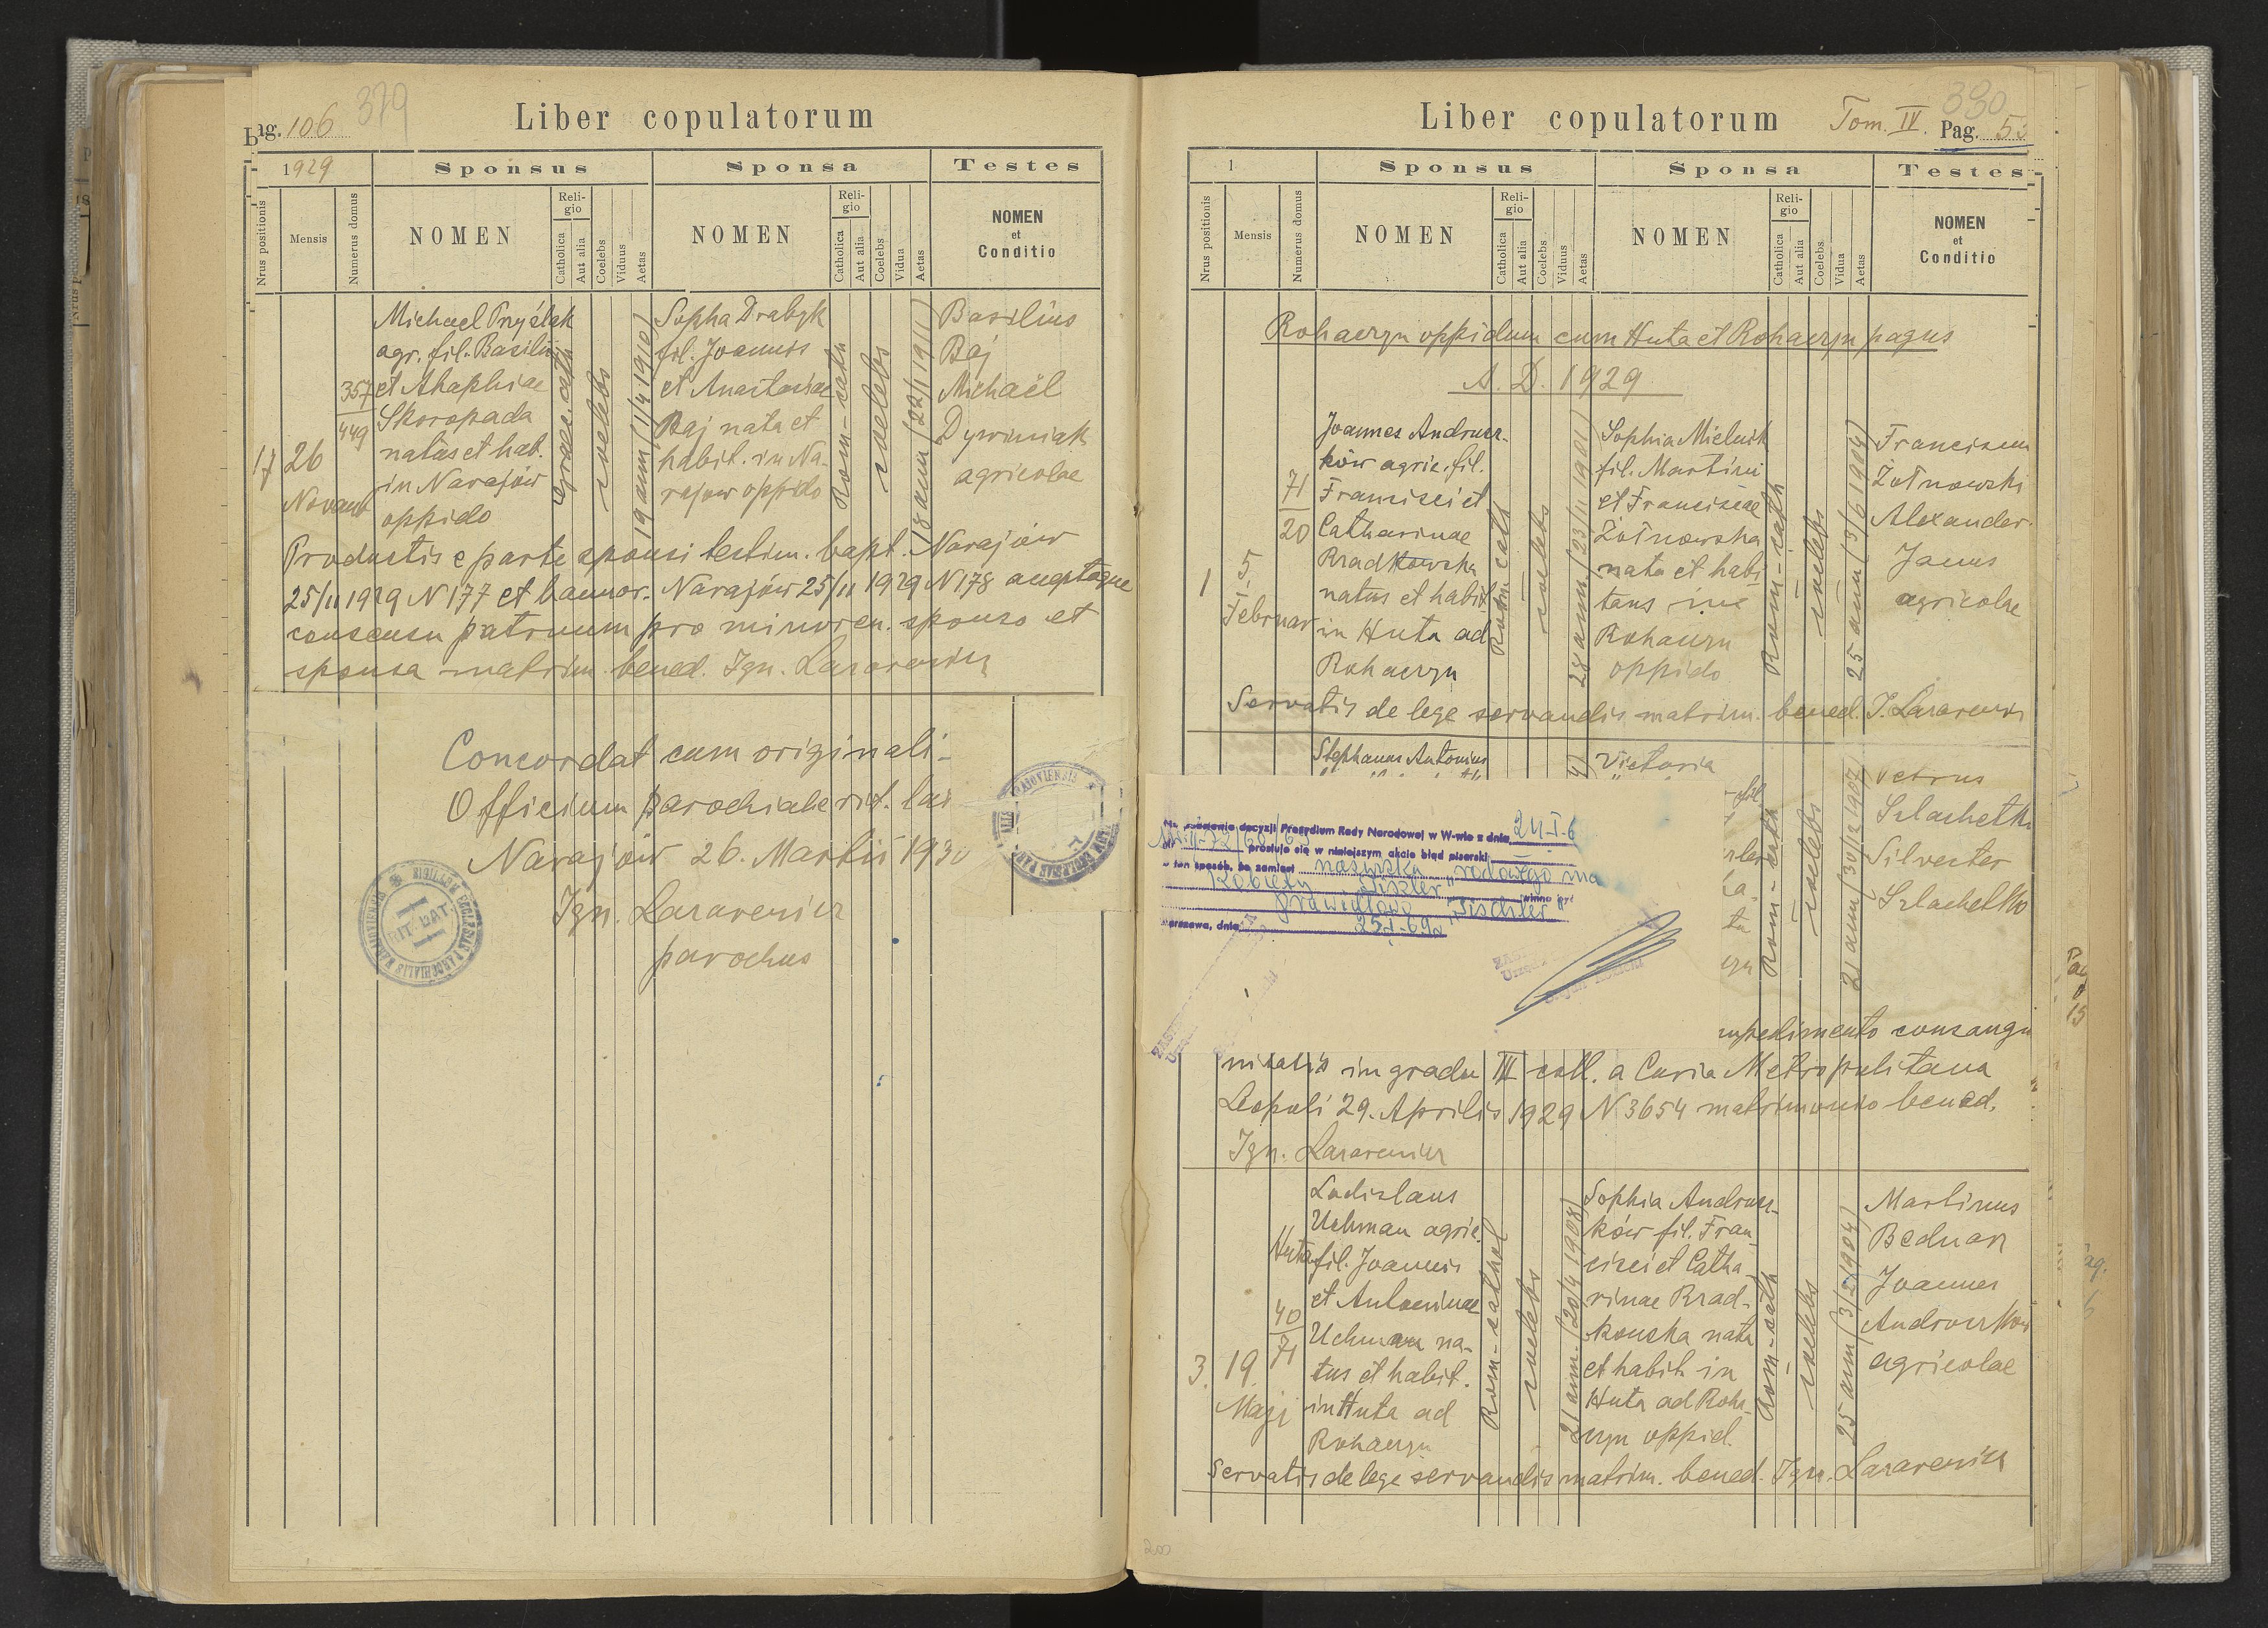 Pag. 106 379
Liber copulatorum
1929
Sponsus
Sponsa
Testes
Nrus positionis
Mensis
Numerus domus
NOMEN
Religio
Catholica
Aut alia
Coelebs
Viduus
Aetas
NOMEN
Religio
Catholica
Aut alia
Coelebs
Vidua
Aetas
NOMEN
et
Conditio
17
26
Novemb
357
449
Michael
agr. fil. Basilii
et Ahaphiae
Skoropada
natus et hab.
in Narajów
oppido
Graec. cath
coelebs
19 ann (1/4 1910)
Sopha Drabyk
fil. Joannis
et Anastasiae
Baj nata et
habit. in Na-
rajow oppido
Rom-cath
coelebs
18 ann (22/1 1911)
Basilius
Baj
Michaël
Dywiniak
agricolae
Productis e parte sponsi testim. bapt. Narajów
25/11 1929 N 177 et bannor. Narajów 25/11 1929 N 178 aceptaque
consensu patruum pro minoren. sponso et
sponsa matrim. bened. Ign. Lazarewicz
Concordat cum originali-
Officium parochiale rit. lat
Narajów 26. Martii 1930
Ign. Lazarewicz
parochus
RIT. LAT
380
Liber copulatorum
Tom. IV. Pag. 53
1
Sponsus
Sponsa
Testes
Nrus positionis
Mensis
Numerus domus
NOMEN
Religio
Catholica
Aut alia
Coelebs
Viduus
Aetas
NOMEN
Religio
Catholica
Aut alia
Coelebs
Vidua
Aetas
NOMEN
et
Conditio
Rohaczyn oppidum cum Huta et Rohaczyn pagus
A. D. 1929
1
5
Februar
71
20
Joannes Andrusz-
ków agric. fil.
Francisci et
Catharinae
Rradkowska
natus et habit.
in Huta ad
Rohaczyn
Rom-cath
coelebs
28 ann. (23/11 1901)
Sophia Mielnik
fil. Martini
et Franciscae
Żołnowska
nata et habi
tans in
Rohaczyn
oppido
Rom-cath
coelebs
25 ann (3/6 1904)
Franciscus
Żołnowski
Alexander
Janus
agricolae
Servatis de lege servandis matrim. bened. I. Lazarewicz
Stephanus Antonius
Victoria
Rom-cath
coelebs
21 ann (30/12 1907)
Petrus
Szlachetko
Silvester
Szlachetko
Na podstawie decyzji Prezydium Rady Narodowej w W-wie z dnia 24-I-6
prostuje się w niniejszym akcie błąd pisarski
w ten sposób, że zamiast nazwiska rodowego ma
kobiety "Tiszler" winno być
prawidłowo "Tischler"
Warszawa, dnia 25.I-69
impedimento consangu
nitatis in gradu III coll. a Curia Metropolitana
Leopoli 29. Aprilis 1929 N 3654 matrimonio bened.
Ign. Lazarewicz
3.
19.
Maji
Huta
40
71
Ladislaus
Uchman agric.
fil. Joannis
et Antoninae
Uchman na-
tus et habit.
in Huta ad
Rohaczyn
Rom-cathol
coelebs
21 ann. (20/4 1908)
Sophia Andrusz-
ków fil. Fran-
cisci et Catha-
rinae Rrad-
kowska nata
et habit. in
Huta ad Roha-
czyn oppid.
Rom-cath
coelebs
25 ann (3/2 1904)
Martinus
Bednarz
Joannes
Andruszków
agricolae
Servatis de lege servandis matrim. bened. Ign. Lazarewicz
200